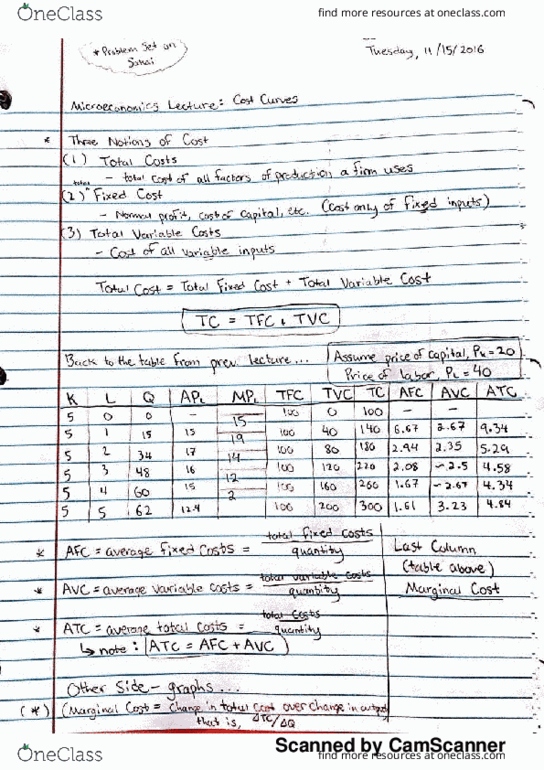 OneClass
find more resources at oneclass.com
* Problem Set on
Sakai
Tuesday, 11/15/2016
Microeconomics Lecture: Cost Curves
* Three Notions of Cost
(1) Total Costs
- total cost of all factors of production a firm uses
(2) total Fixed Cost
- Normal profit, cost of capital, etc. (Cost only of fixed inputs)
(3) Total Variable Costs
- Cost of all variable inputs
Total Cost = Total Fixed Cost + Total Variable Cost
TC = TFC + TVC
Back to the table from prev. lecture... Assume price of capital, Pk = 20
Price of labor, PL = 40
K L Q APL MPL TFC TVC TC AFC AVC ATC
5 0 0 - 100 0 100 - -
15
5 1 15 15 100 40 140 6.67 2.67 9.34
19
5 2 34 17 100 80 180 2.94 2.35 5.29
14
5 3 48 16 100 120 220 2.08 ~2.5 4.58
12
5 4 60 15 100 160 260 1.67 ~2.67 4.34
2
5 5 62 12.4 100 200 300 1.61 3.23 4.84
* AFC = average fixed costs = total fixed costs / quantity
Last Column
(table above)
Marginal Cost
* AVC = average variable costs = total variable costs / quantity
* ATC = average total costs = total costs / quantity
↳ note: ATC = AFC + AVC
Other Side - graphs...
(*) (Marginal Cost = change in total cost over change in output
that is, ΔTC/ΔQ
Scanned by CamScanner
OneClass
find more resources at oneclass.com